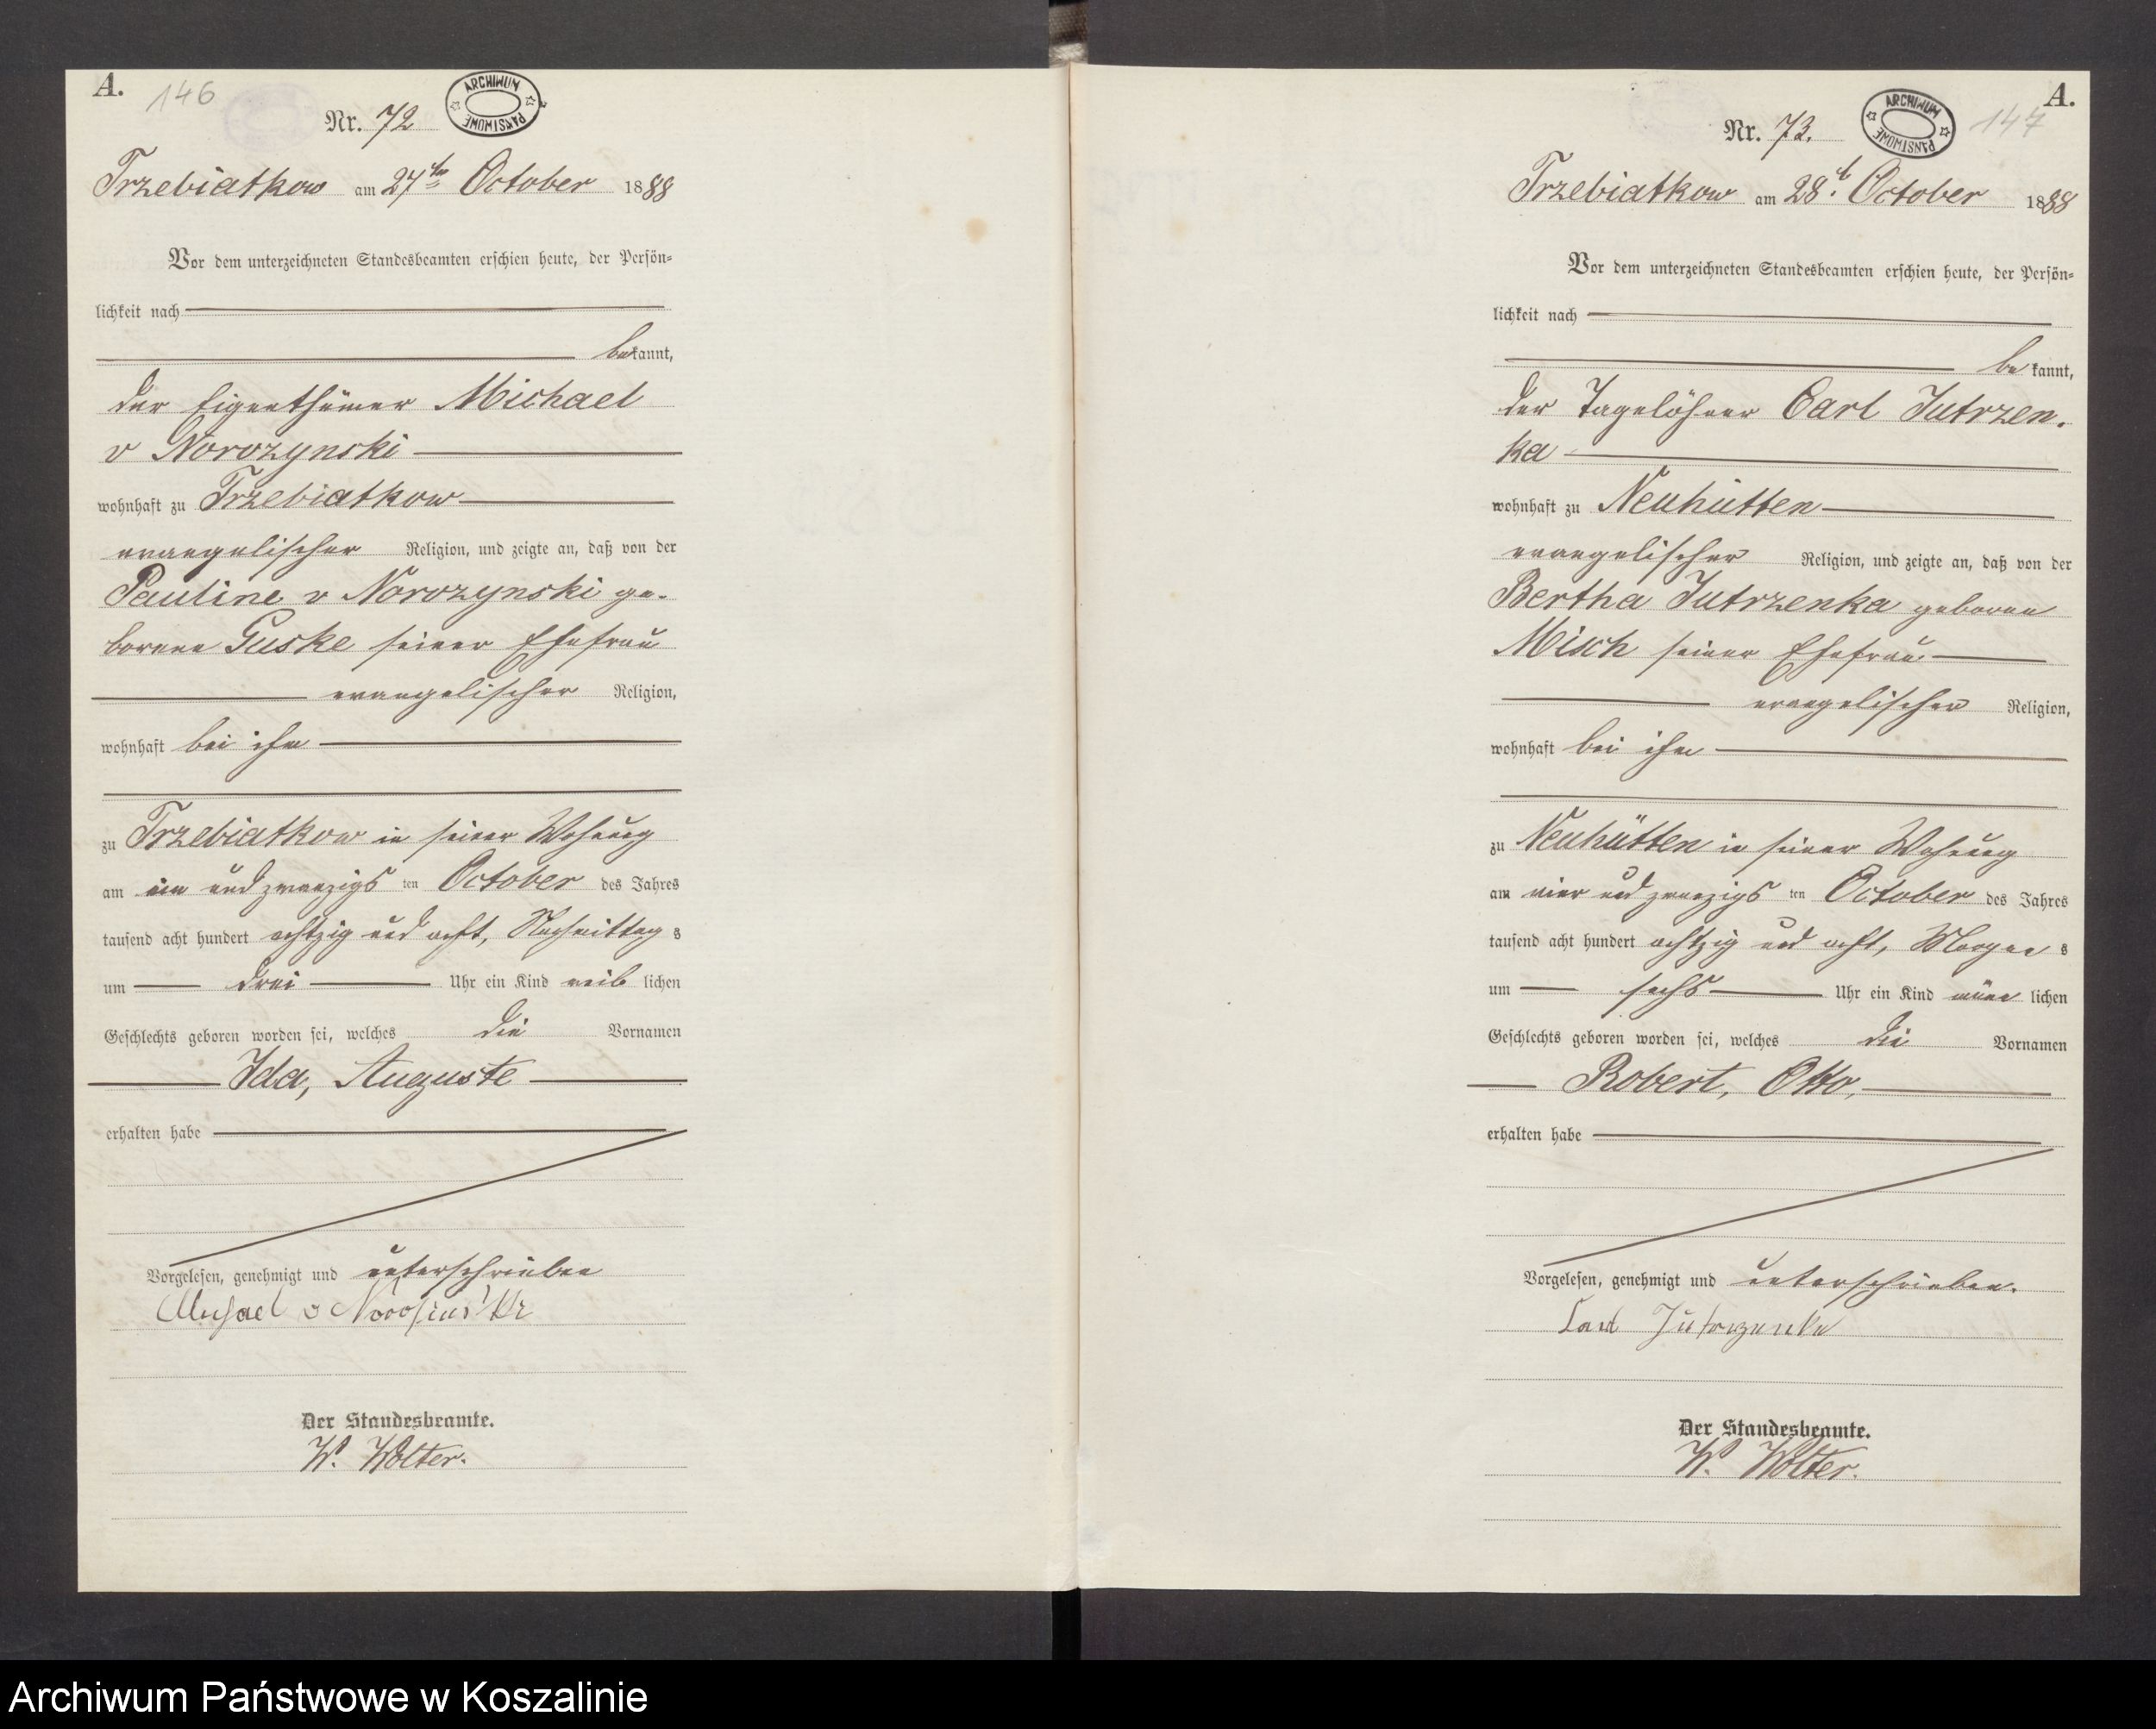 A.
146
Nr. 72
ARCHIWUM PAŃSTWOWE
Trzebiatkow am 27ten October 1888
Vor dem unterzeichneten Standesbeamten erschien heute, der Persön=
lichkeit nach
bekannt,
der Eigenthümer Michael
v Norozynski
wohnhaft zu Trzebiatkow
evangelischer Religion, und zeigte an, daß von der
Pauline v Norozynski ge-
borene Guske seiner Ehefrau
evangelischer Religion,
wohnhaft bei ihm
zu Trzebiatkow in seiner Wohnung
am ein und zwanzigs ten October des Jahres
tausend acht hundert achtzig und acht, Nachmittag s
um drei Uhr ein Kind weib lichen
Geschlechts geboren worden sei, welches die Vornamen
Ida, Auguste
erhalten habe
Vorgelesen, genehmigt und unterschrieben
Michael v
Der Standesbeamte.
W. Wolter.
A.
147
Nr. 73.
ARCHIWUM PAŃSTWOWE
Trzebiatkow am 28t. October 1888
Vor dem unterzeichneten Standesbeamten erschien heute, der Persön=
lichkeit nach
be kannt,
der Tagelöhner Carl Jutrzen-
ka
wohnhaft zu Neuhütten
evangelischer Religion, und zeigte an, daß von der
Bertha Jutrzenka geborene
Misch seiner Ehefrau
evangelischer Religion,
wohnhaft bei ihm
zu Neuhütten in seiner Wohnung
am vier und zwanzigs ten October des Jahres
tausend acht hundert achtzig und acht, Morgen s
um sechs Uhr ein Kind männ lichen
Geschlechts geboren worden sei, welches die Vornamen
Robert, Otto,
erhalten habe
Vorgelesen, genehmigt und unterschrieben.
Carl Jutrzenka
Der Standesbeamte.
W. Wolter.
Archiwum Państwowe w Koszalinie